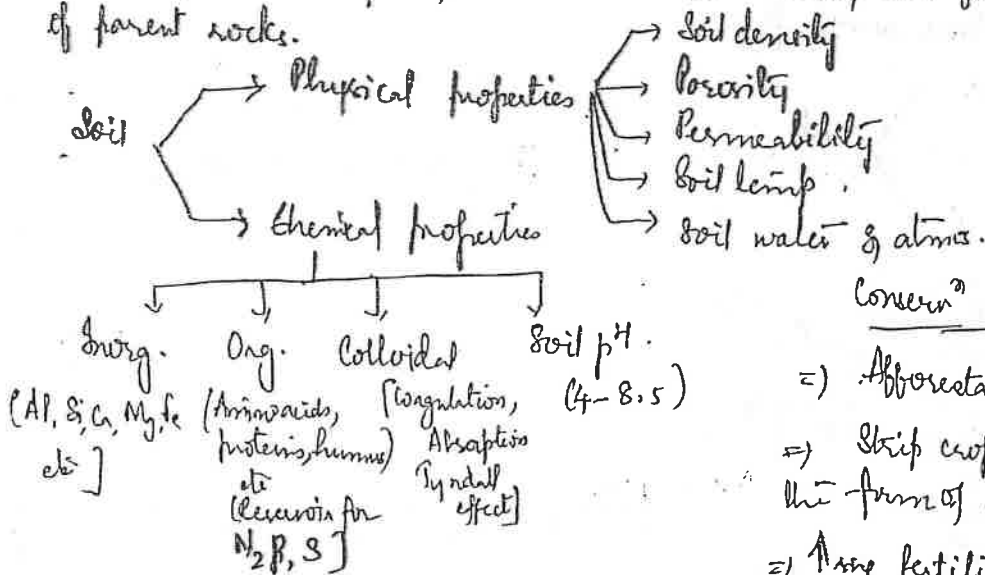 of parent rocks.
Soil
Physical properties
Soil density
Porosity
Permeability
Soil temp.
Soil water & atmos.
Chemical properties
Inorg.
[Al, Si, Ca, Mg, Fe
etc]
Org.
(Aminoacids,
proteins, humus)
etc
[Reservoir for
N₂, P, S]
Colloidal
[Coagulation,
Absorption
Tyndall
effect]
Soil pH.
(4-8.5)
Conservⁿ
=) Afforesta
=) Strip crop
the form of
=) fertili